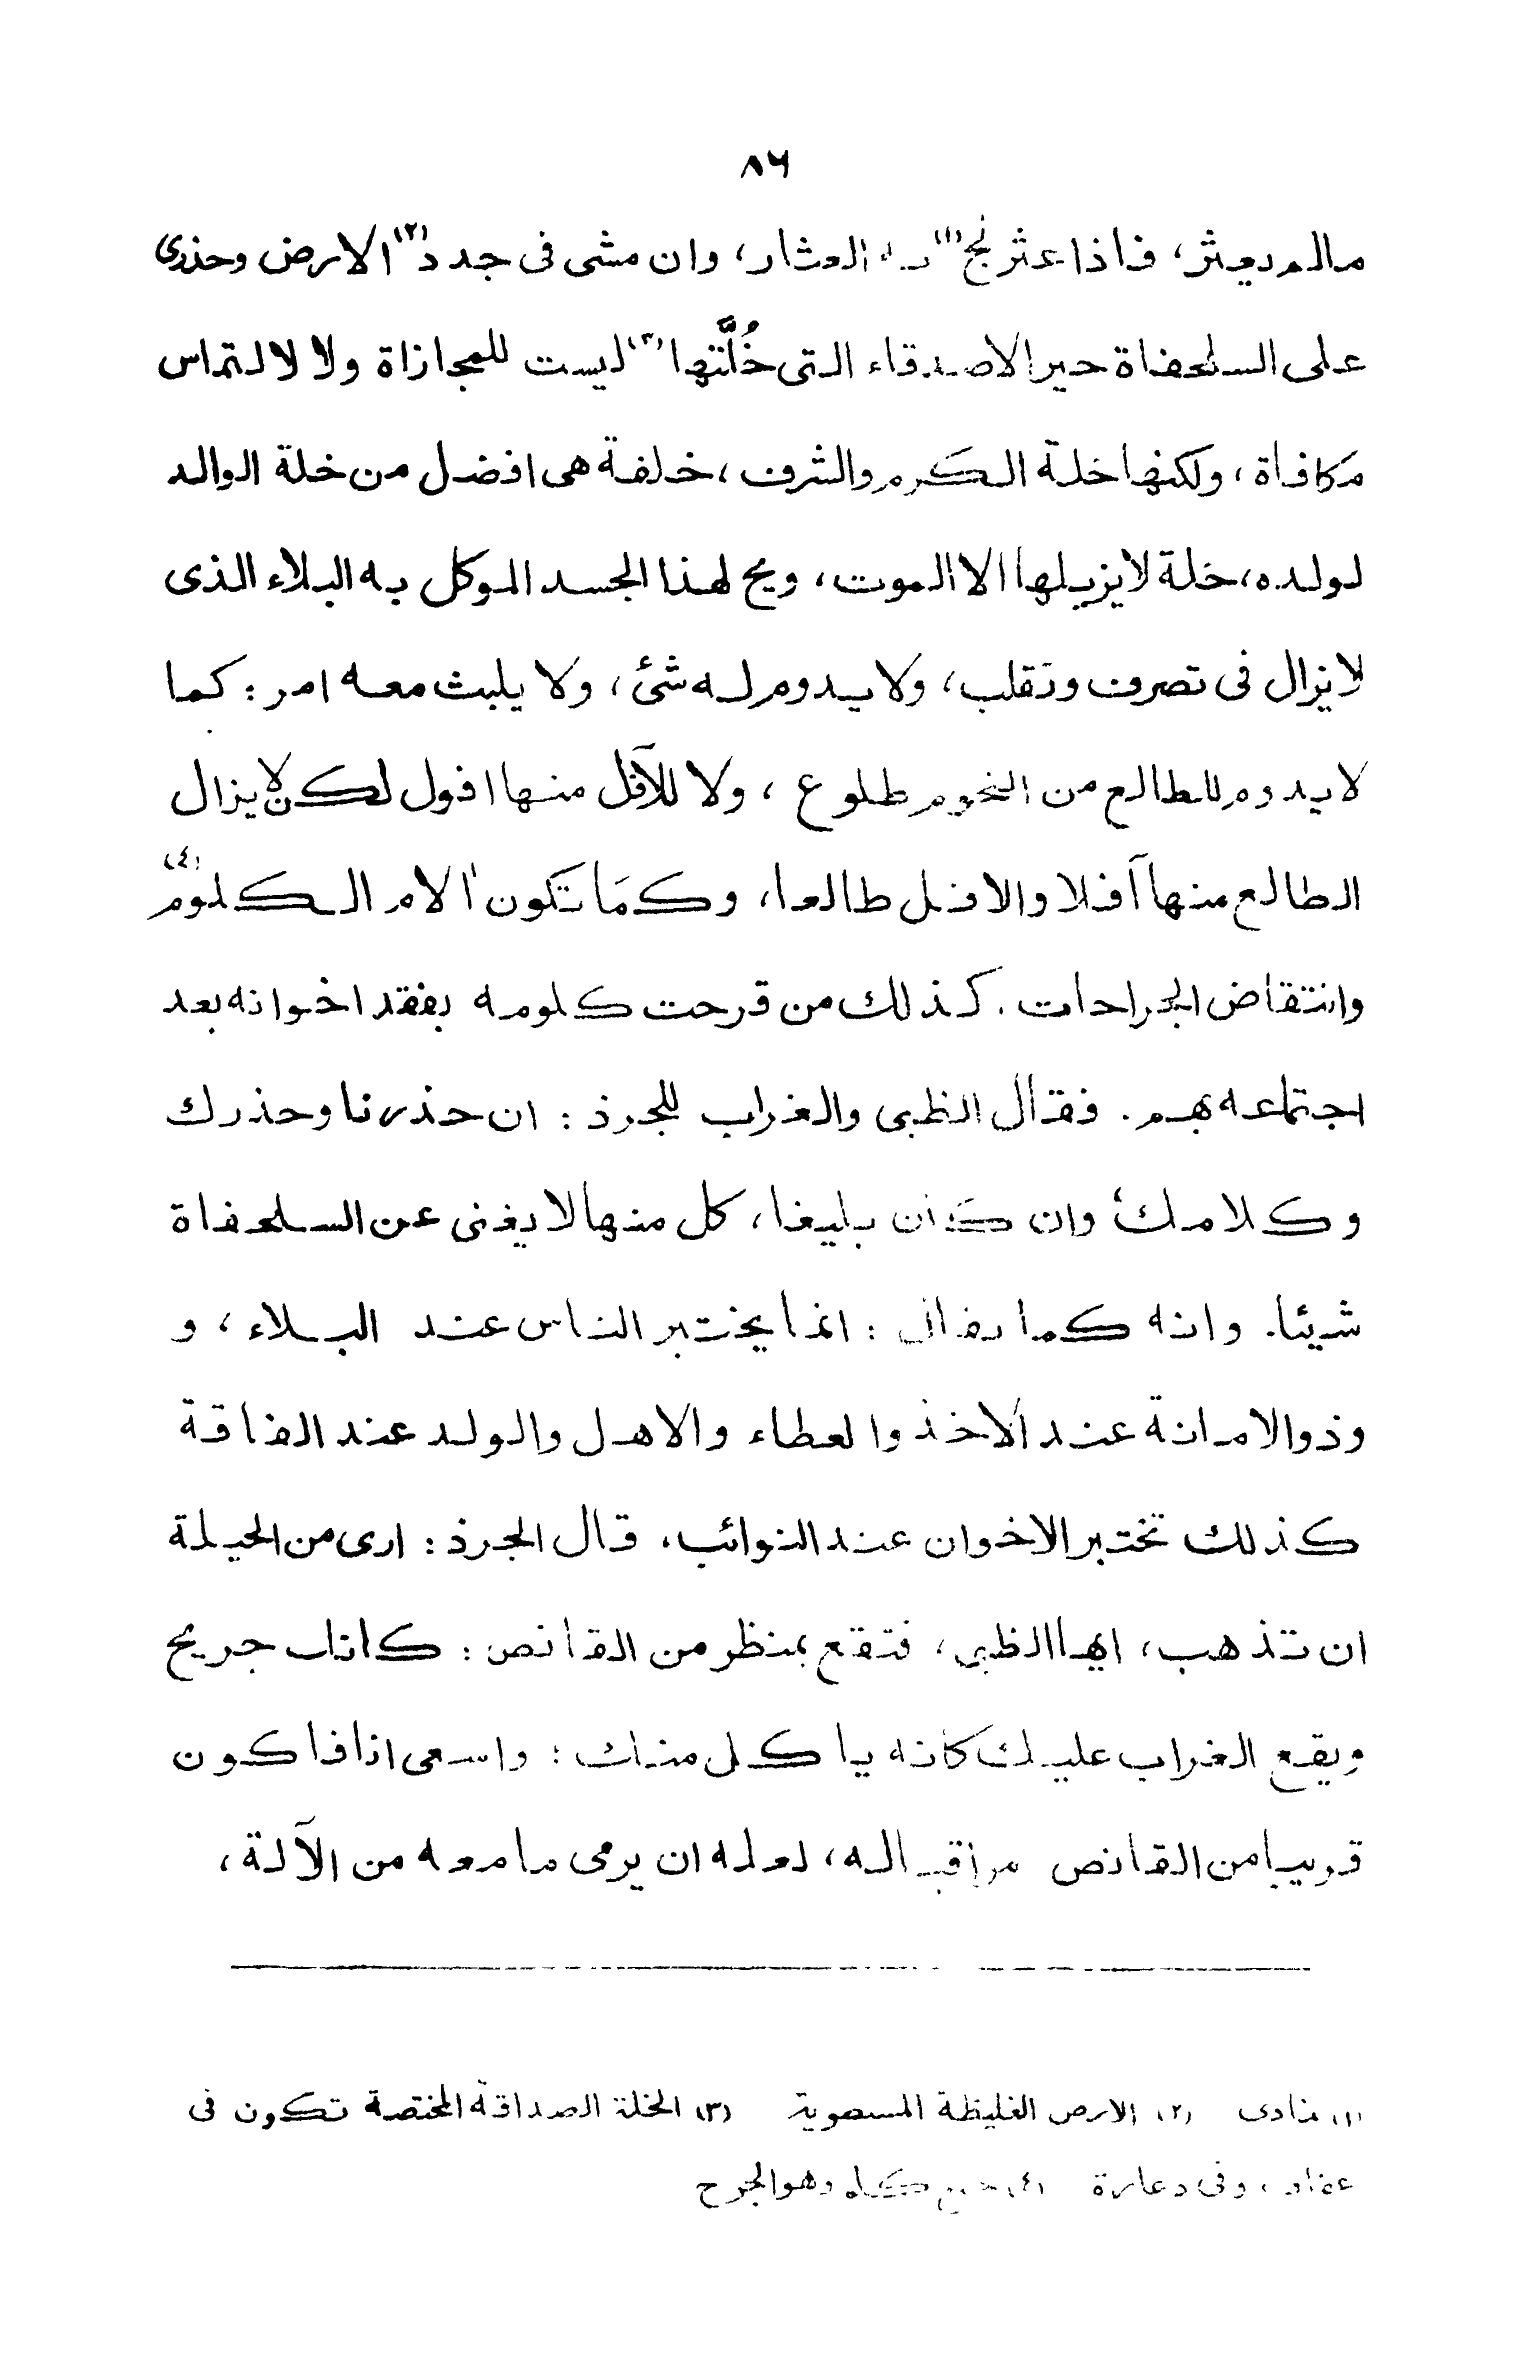 ٨٦
مالم يعثر، فاذا عثر لج(١) به العثار، وان مشى فى جدد(٢) الارض وحذرى
على السلحفاة خير الاصدقاء التى خُلَّتها(٣) ليست للمجازاة ولا لالتماس
مكافأة، ولكنها خلة الكرم والشرف، خلفة هى افضل من خلة الوالد
لولده، خلة لا يزيلها الا الموت، ويح لهذا الجسد الموكل به البلاء الذى
لا يزال فى تصرف وتقلب، ولا يدوم له شئ، ولا يلبث معه امر: كما
لا يدوم للطالع من النجوم طلوع، ولا للآفل منها افول لكن لا يزال
الطالع منها آفلا والافل طالعا، وكما تكون الام الكلوم(٤)
وانتقاض الجراحات. كذلك من قرحت كلومه بفقد اخوانه بعد
اجتماعه بهم. فقال الظبى والغراب للجرذ: ان حذرنا وحذرك
وكلامك وان كان بليغا، كل منها لا يغنى عن السلحفاة
شيئا. وانه كما يقال: انما يختبر الناس عند البلاء، و
وذو الامانة عند الاخذ والعطاء والاهل والولد عند الفاقة
كذلك تختبر الاخوان عند النوائب. قال الجرذ: ارى من الحيلة
ان تذهب، ايها الظبى، فتقع بمنظر من القانص: كانك جريح
ويقع الغراب عليك كانه ياكل منك: واسعى انا فاكون
قريبا من القانص مراقبا له، لعله ان يرمى ما معه من الآلة،
(١) تمادى (٢) الارض الغليظة المستوية (٣) الخلة الصداقة المختصة تكون فى
عفاف، وفى دعارة (٤) جمع كلم وهو الجرح